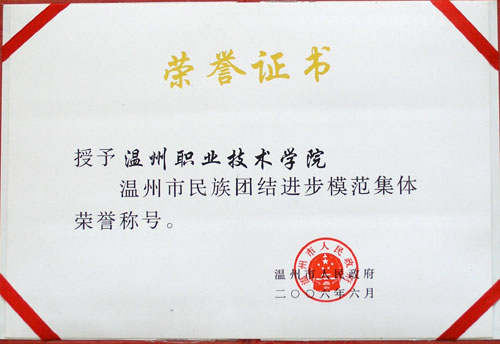 荣誉证书
授予 温州职业技术学院
温州市民族团结进步模范集体
荣誉称号。
温州市人民政府
温州市人民政府
二〇〇六年六月